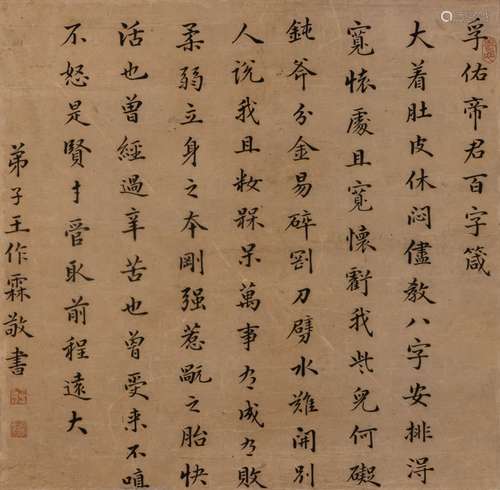 孚佑帝君百字箴
大着肚皮休悶儘教八字安排得
寬懷處且寬懷虧我些兒何礙
鈍斧分金易碎剛刀劈水難開別
人說我且粧呆萬事有成有敗
柔弱立身之本剛强惹禍之胎快
活也曾經過辛苦也曾受來不嗔
不怒是賢才管取前程遠大
弟子王作霖敬書